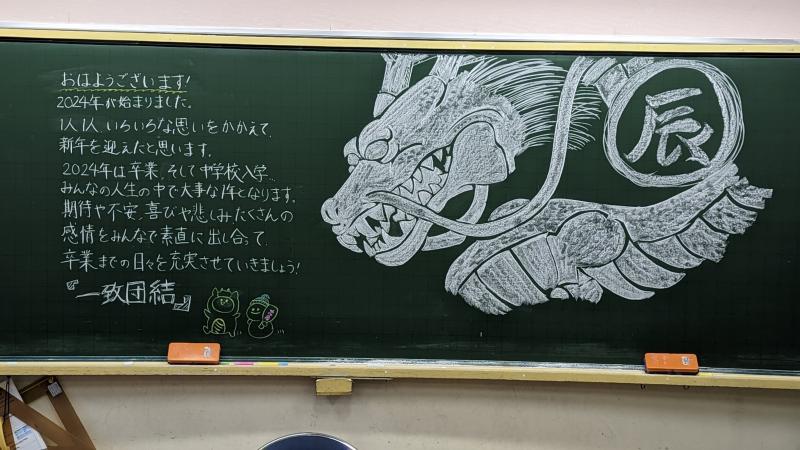 おはようございます!
2024年が始まりました。
1人1人、いろいろな思いをかかえて、
新年を迎えたと思います。
2024年は卒業、そして中学校入学…
みんなの人生の中で大事な1年となります。
期待や不安、喜びや悲しみたくさんの
感情をみんなで素直に出し合って、
卒業までの日々を充実させていきましょう!
『一致団結』
辰